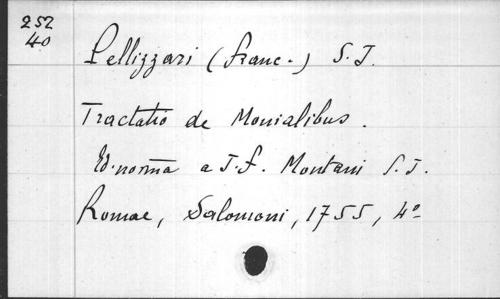 252
40
Pellizzari (Franc.) S. J.
Tractatio de Monialibus.
Ed. norma a J. F. Montani S. J.
Romae, Salomoni, 1755, 4º